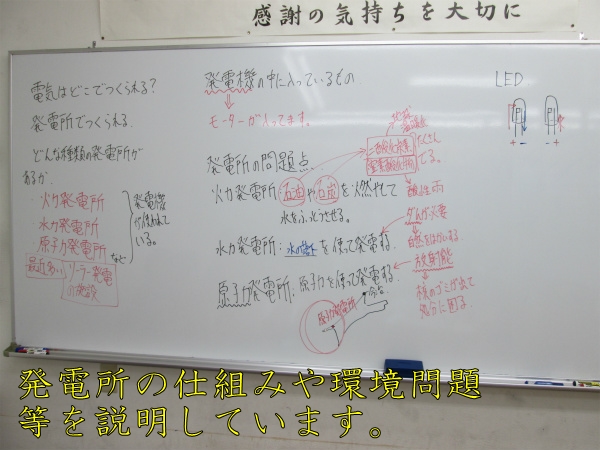 感謝の気持ちを大切に
電気はどこでつくられる?
発電所でつくられる.
どんな種類の発電所が
あるか.
火力発電所
水力発電所
原子力発電所 など
発電機
が使われて
いる。
最近多い
ソーラー発電
の施設
発電機の中に入っているもの
モーターが入ってます。
発電所の問題点
火力発電所 石油や石炭を燃やして
水をふっとうさせる。
地球
温暖化
二酸化炭素
窒素酸化物
たくさん
でる。
酸性雨
水力発電所:水の落下を使って発電する.
ダムが必要
自然をはかいする
原子力発電所:原子力を使って発電する
放射能
核のゴミが出て
処分に困る.
原子力発電所
LED
+ -
+ -
発電所の仕組みや環境問題
等を説明しています。